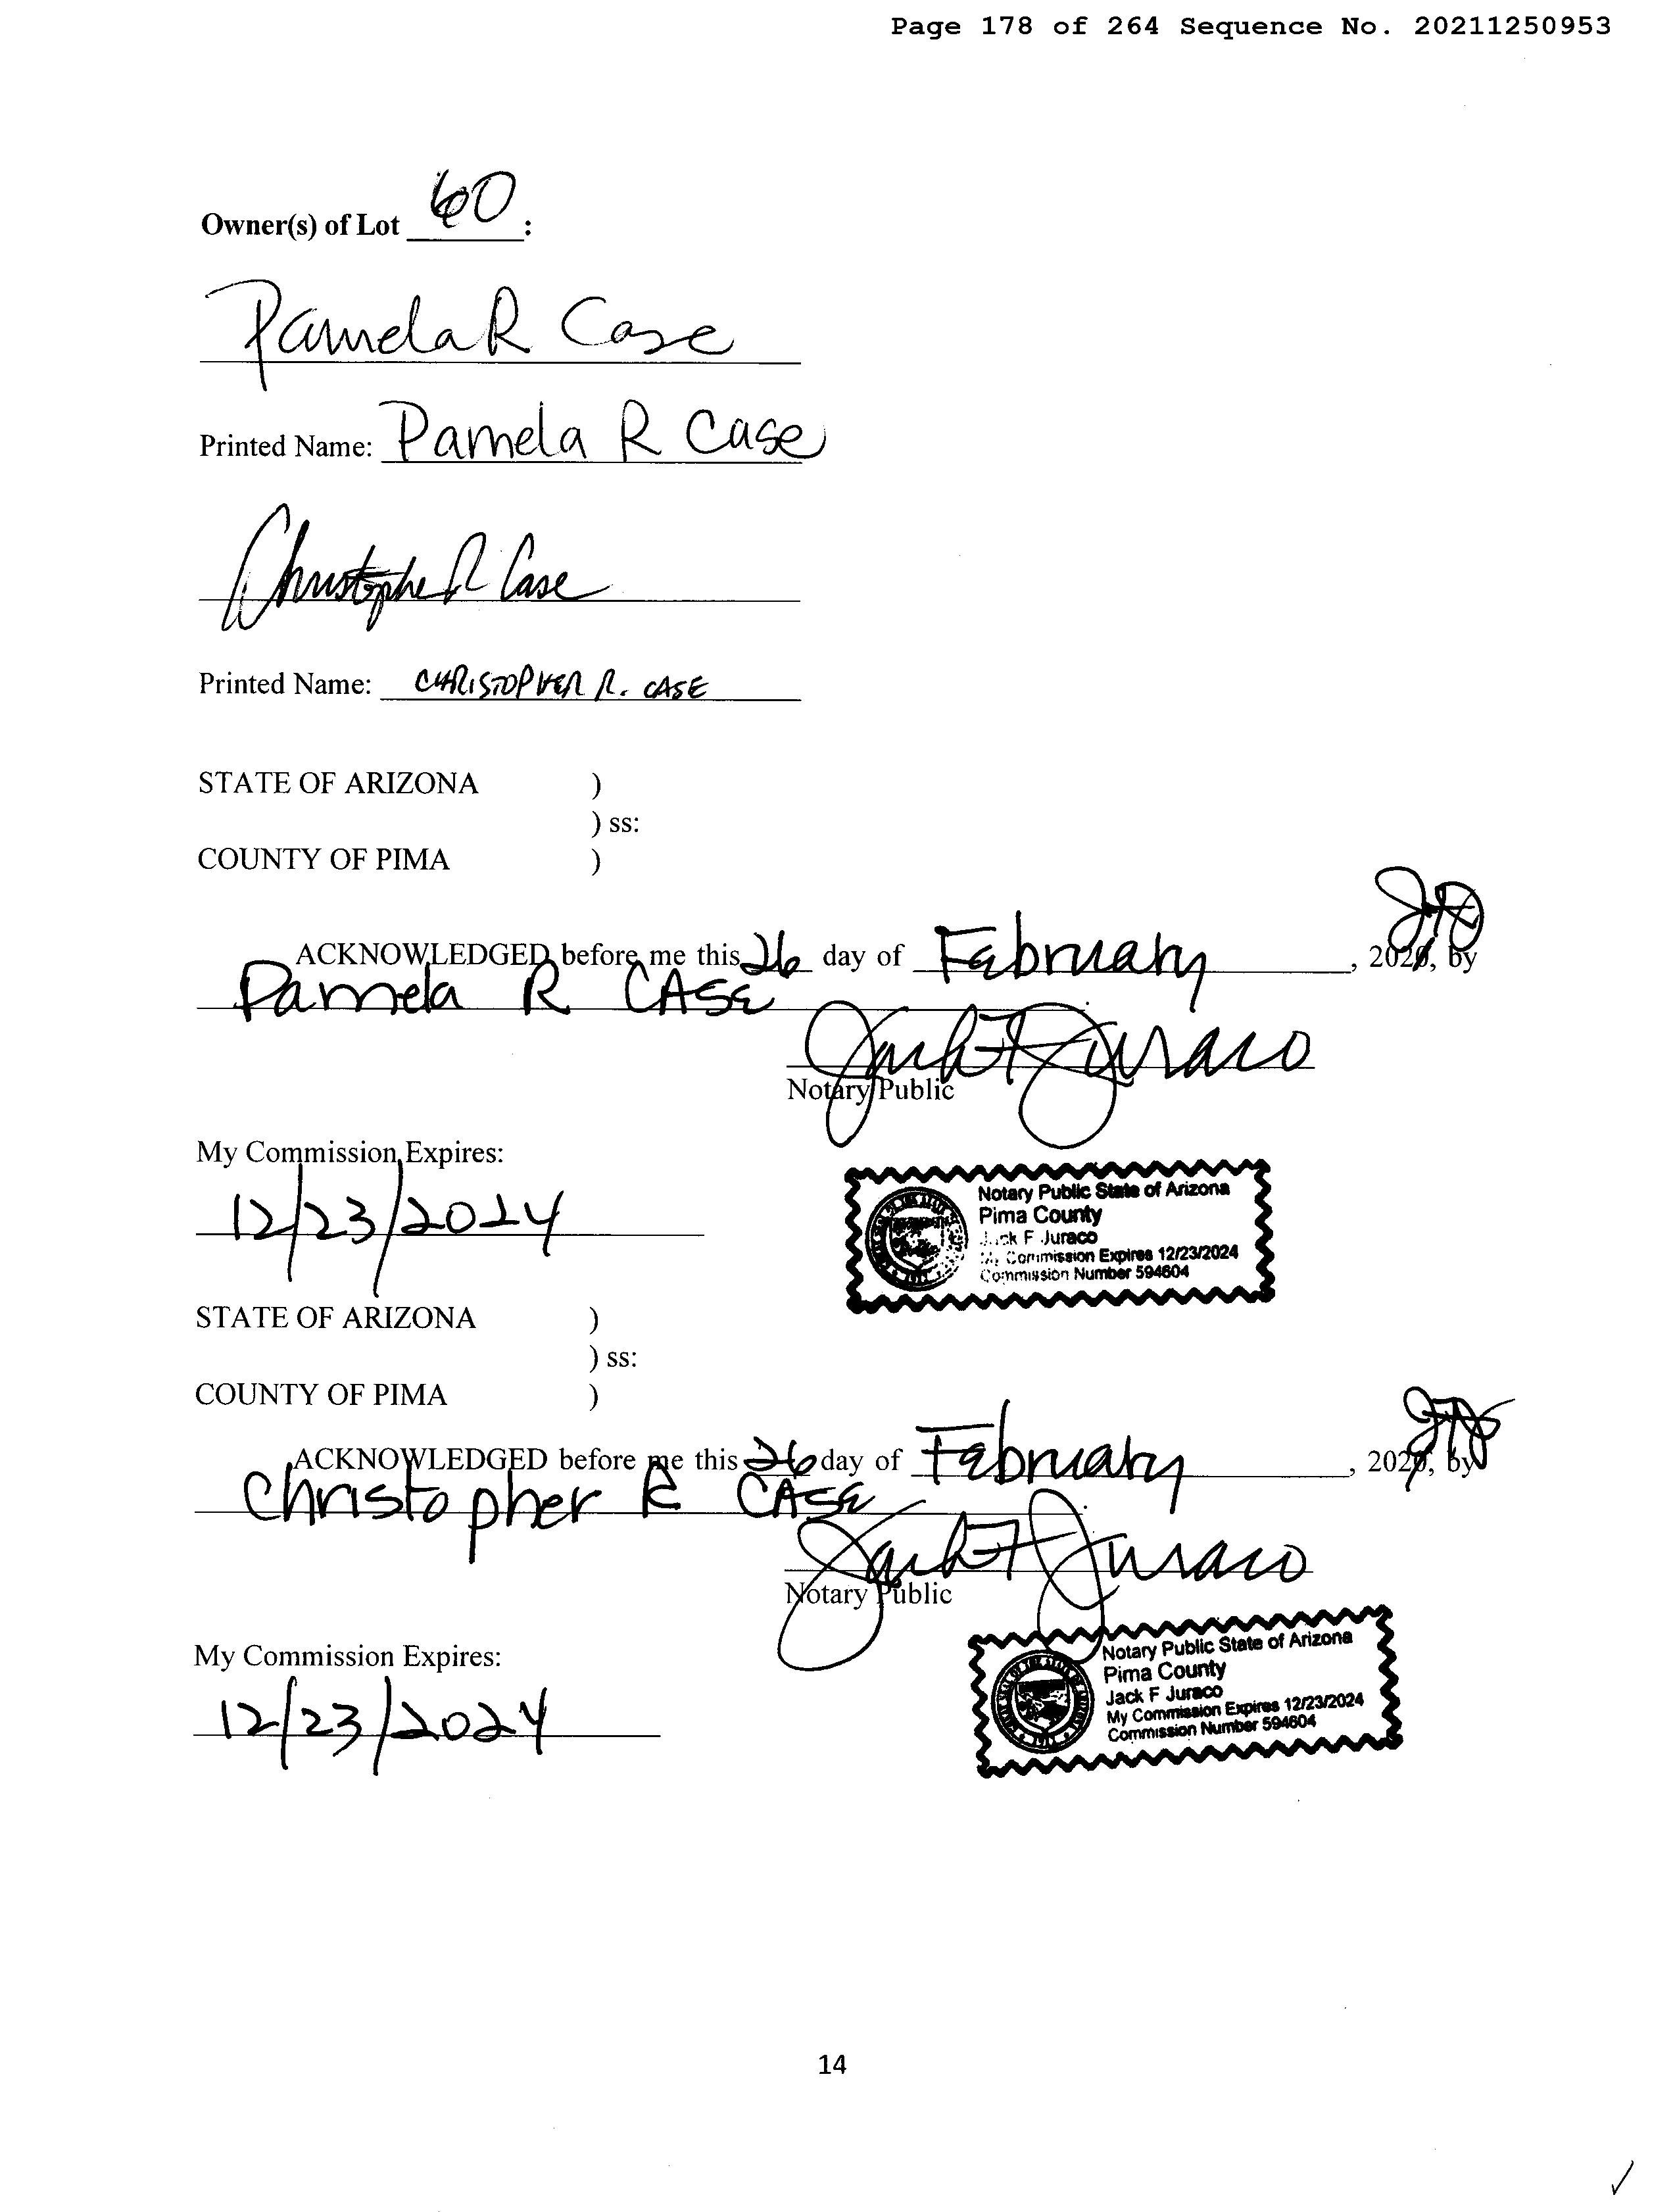 Page 178 of 264 Sequence No. 20211250953
Owner(s) of Lot 60:
Pamela R Case
Printed Name: Pamela R Case
Christopher R Case
Printed Name: CHRISTOPHER R. CASE
STATE OF ARIZONA )
) ss:
COUNTY OF PIMA )
ACKNOWLEDGED before me this 26 day of February, 2020, by
Pamela R CASE
Jack F Juraco
Notary Public
My Commission Expires:
12/23/2024
Notary Public State of Arizona
Pima County
Jack F Juraco
My Commission Expires 12/23/2024
Commission Number 594604
STATE OF ARIZONA )
) ss:
COUNTY OF PIMA )
ACKNOWLEDGED before me this 26 day of February, 2020, by
Christopher R CASE
Jack F Juraco
Notary Public
My Commission Expires:
12/23/2024
Notary Public State of Arizona
Pima County
Jack F Juraco
My Commission Expires 12/23/2024
Commission Number 594604
14